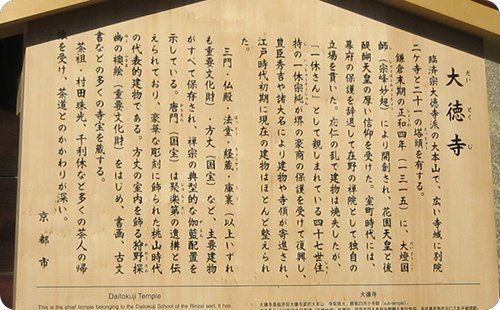 だいとくじ
大徳寺
臨済宗大徳寺派の大本山で、広い寺域に別院
二ケ寺と二十一の塔頭を有する。
鎌倉末期の正和四年（一三一五）に、大燈国
師（宗峰妙超）により開創され、花園天皇と後
醍醐天皇の厚い信仰を受けた。室町時代には、
幕府の保護を辞退して在野の禅院として独自の
立場を貫いた。応仁の乱で建物は焼失したが、
「一休さん」として親しまれている四十七世住
持の一休宗純が堺の豪商の保護を受けて復興し、
豊臣秀吉や諸大名により建物や寺領が寄進され、
江戸時代初期に現在の建物はほとんど整えられ
た。
三門・仏殿・法堂・経蔵・庫裏（以上いずれ
も重要文化財）・方丈（国宝）など、主要建物
がすべて保存され、禅宗の典型的な伽藍配置を
示している。唐門（国宝）は聚楽第の遺構と伝
えられており、豪華な彫刻に飾られた桃山時代
の代表的建物である。方丈の室内を飾る狩野探
幽の襖絵（重要文化財）をはじめ、書画、古文
書などの多くの寺宝を蔵する。
茶祖・村田珠光、千利休など多くの茶人の帰
依を受け、茶道とのかかわりが深い。
京都市
Daitokuji Temple
This is the chief temple belonging to the Daitokuji School of the Rinzai sect. It has
大徳寺